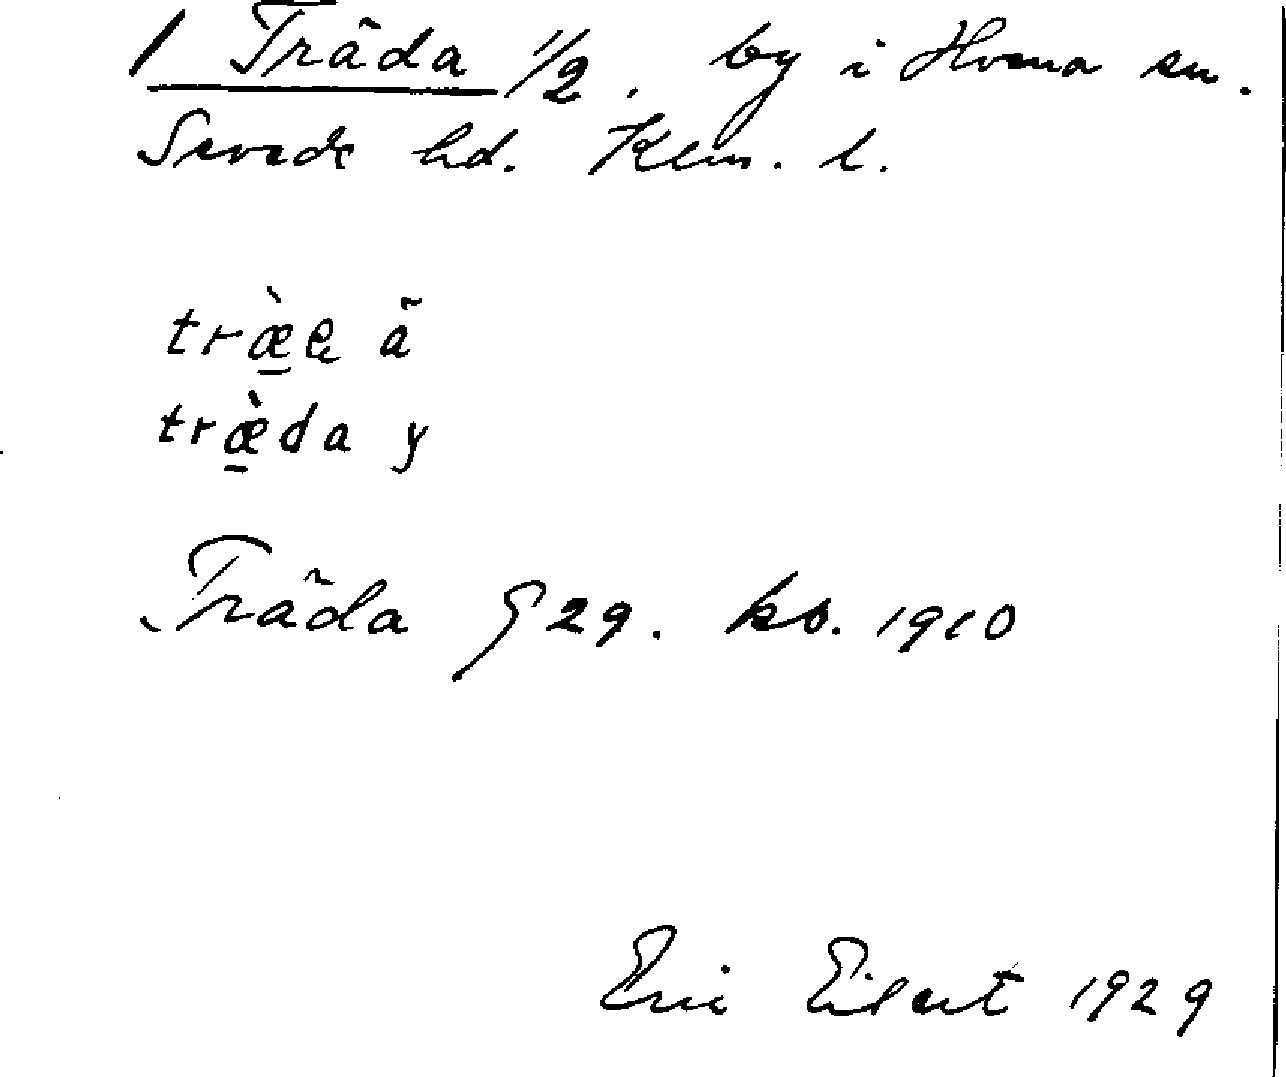 1 Träda 1/2. by i Hvena sn.
Sevede hd. Klm. l.
træ̀e ä
træ̀da y
Träda § 29. ks. 1910
Eric Eilert 1929